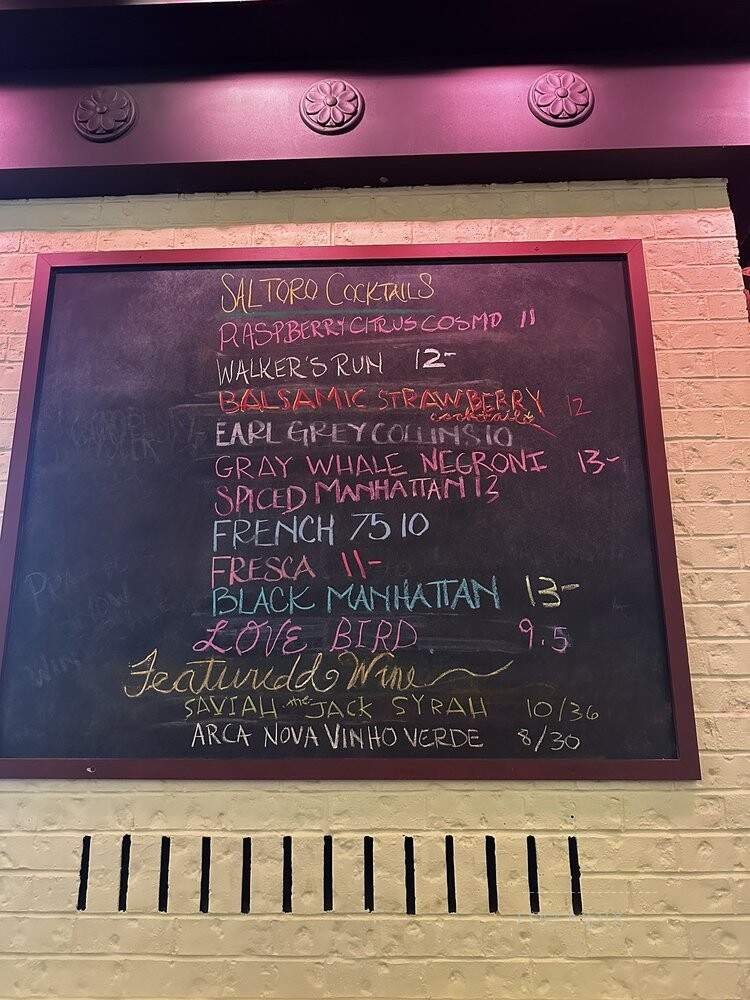 SALTORO COCKTAILS
RASPBERRY CITRUS COSMO 11
WALKER'S RUN 12-
BALSAMIC STRAWBERRY 12
cocktails
EARL GREY COLLINS 10
GRAY WHALE NEGRONI 13-
SPICED MANHATTAN 13
FRENCH 75 10
FRESCA 11-
BLACK MANHATTAN 13-
LOVE BIRD 9.5
Featuredd Wine
SAVIAH the JACK SYRAH 10/36
ARCA NOVA VINHO VERDE 8/30